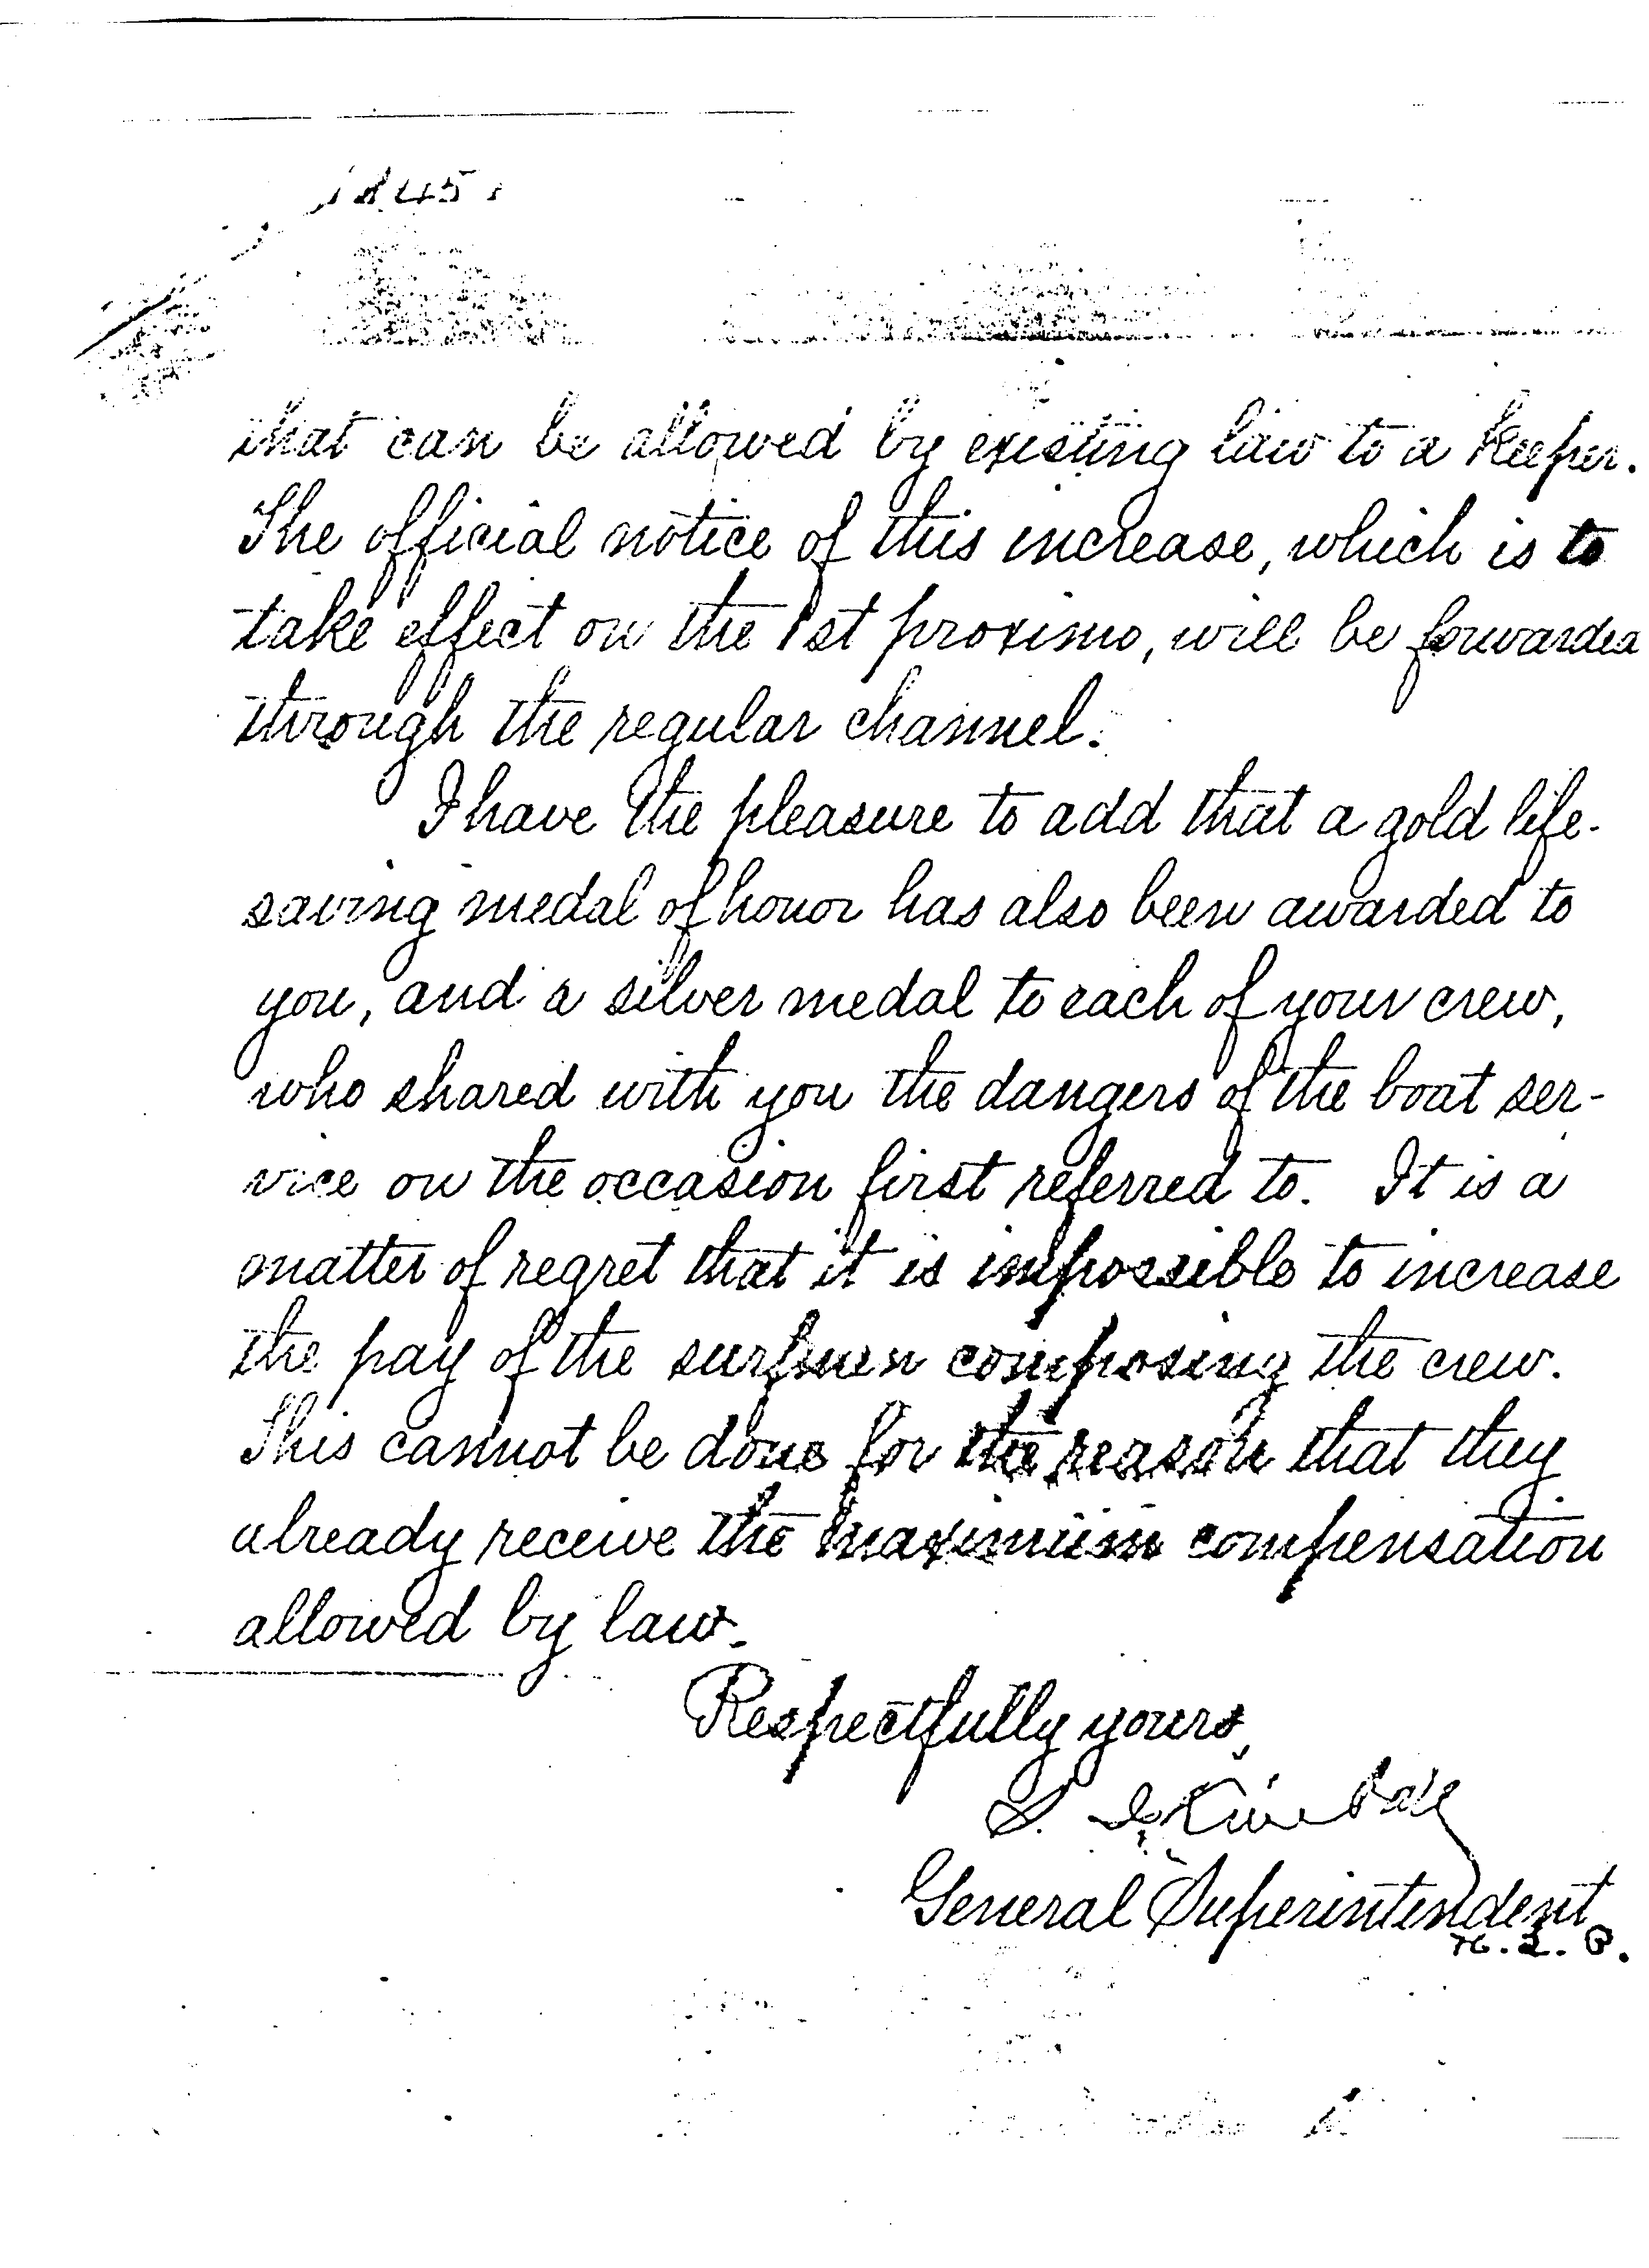 1845
that can be allowed by existing law to a Keeper.
The official notice of this increase, which is to
take effect on the 1st proximo, will be forwarded
through the regular channel.
I have the pleasure to add that a gold life-
saving medal of honor has also been awarded to
you, and a silver medal to each of your crew,
who shared with you the dangers of the boat ser-
vice on the occasion first referred to. It is a
matter of regret that it is impossible to increase
the pay of the surfmen composing the crew.
This cannot be done for the reason that they
already receive the maximum compensation
allowed by law.
Respectfully yours,
S. I. Kimball
General Superintendent